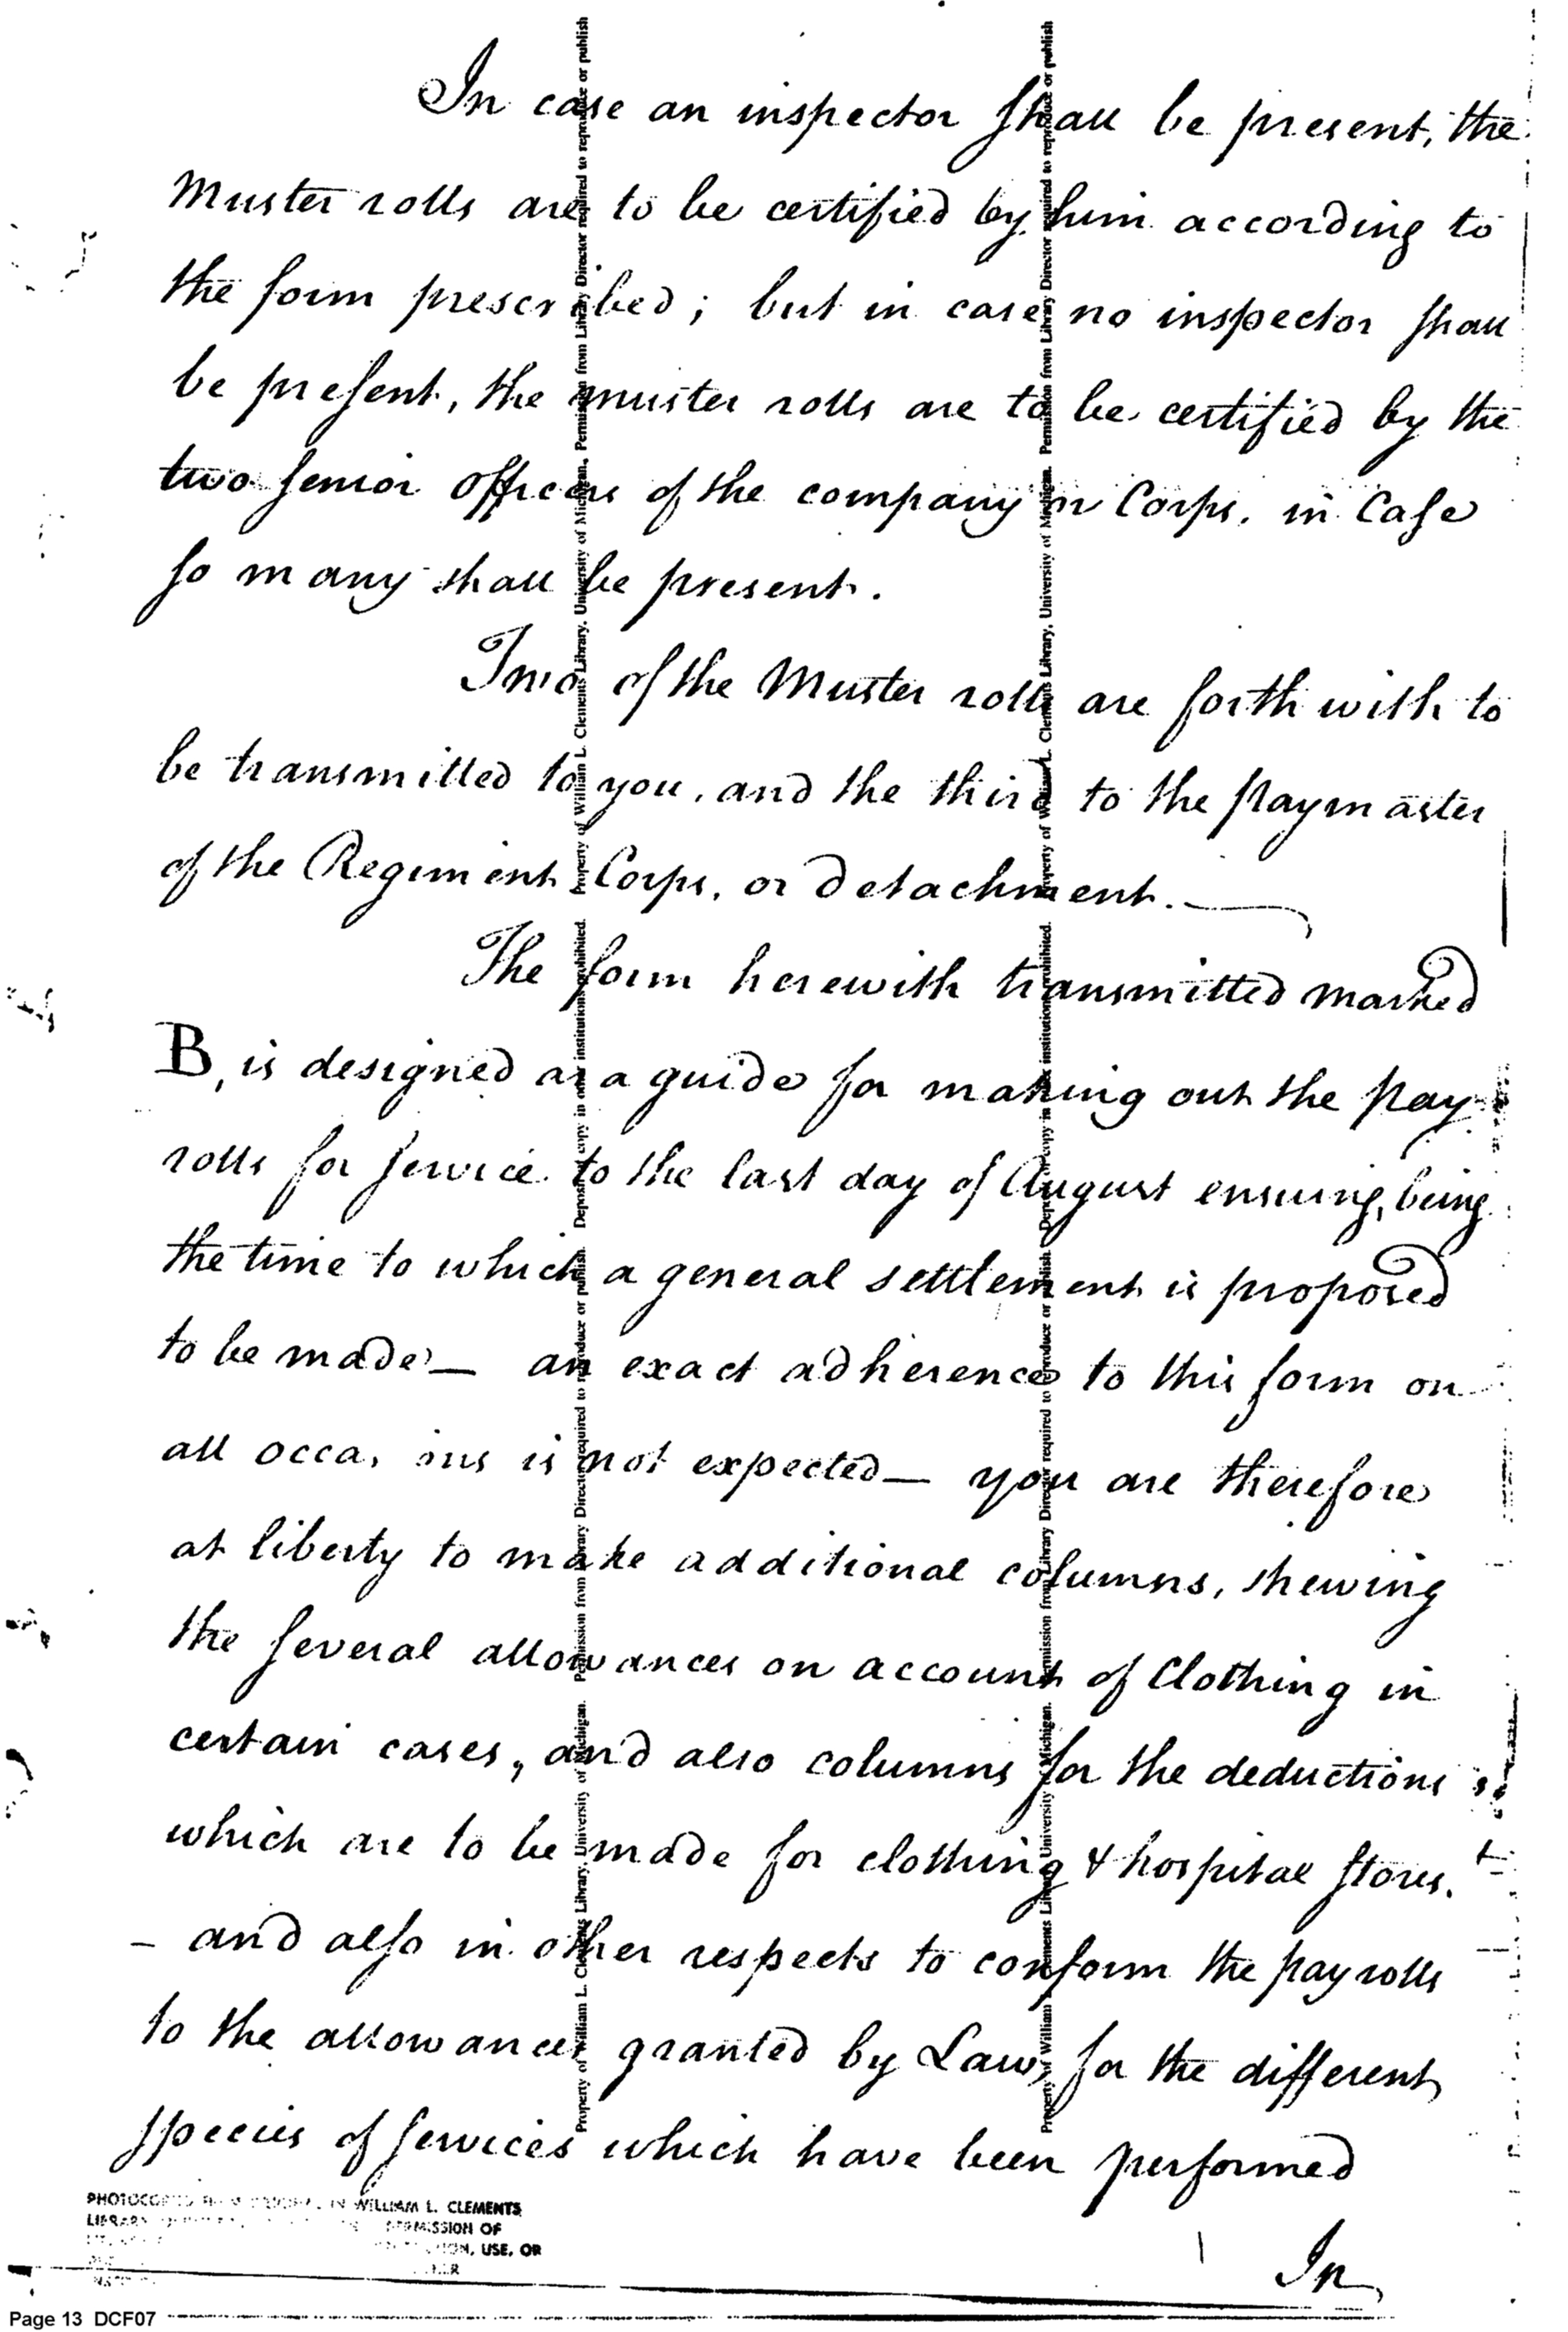 In case an inspector shall be present, the
Muster rolls are to be certified by him according to
the form prescribed; but in case no inspector shall
be present, the muster rolls are to be certified by the
two senior officers of the company or Corps, in Case
so many shall be present.
Two of the Muster rolls are forthwith to
be transmitted to you, and the third to the paymaster
of the Regiment Corps, or detachment.
The form herewith transmitted marked
B, is designed as a guide for making out the pay
rolls for service to the last day of August ensuing, being
the time to which a general settlement is proposed
to be made — an exact adherence to this form on
all occa ins is not expected — you are therefore
at liberty to make additional columns, shewing
the several allowances on account of Clothing in
certain cases, and also columns for the deductions
which are to be made for clothing & hospital stores.
- and also in other respects to conform the pay rolls
to the allowances granted by Law, for the different
species of services which have been performed
In
Property of William L. Clements Library, University of Michigan. Permission from Library Director required to reproduce or publish. Deposit of copy in other institution prohibited.
Property of William L. Clements Library, University of Michigan. Permission from Library Director required to reproduce or publish
Property of William L. Clements Library, University of Michigan. Permission from Library Director required to reproduce or publish. Deposit of copy in other institution prohibited.
Property of William L. Clements Library, University of Michigan. Permission from Library Director required to reproduce or publish
WILLIAM L. CLEMENTS
LIBRARY PERMISSION OF
USE, OR
Page 13 DCF07